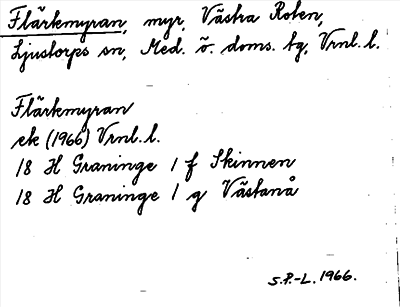 Flärkmyran, myr, Västra Roten,
Ljustorps sn, Med. ö. doms. tg, Vrnl. l.
Flärkmyran
ek (1966) Vrnl. l.
18 H Graninge 1 f Skinnen
18 H Graninge 1 g Västanå
S.P.-L. 1966.